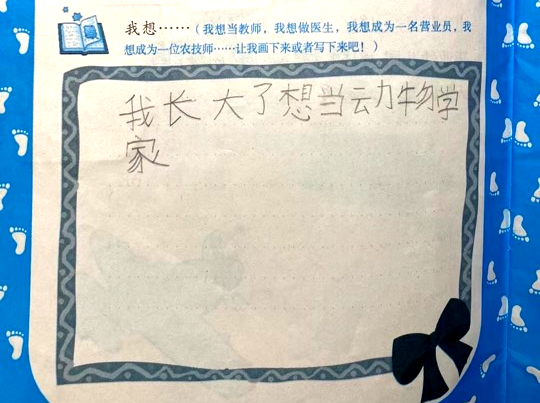 我想……（我想当教师，我想做医生，我想成为一名营业员，我
想成为一位农技师……让我画下来或者写下来吧！）
我长大了想当动物学
家